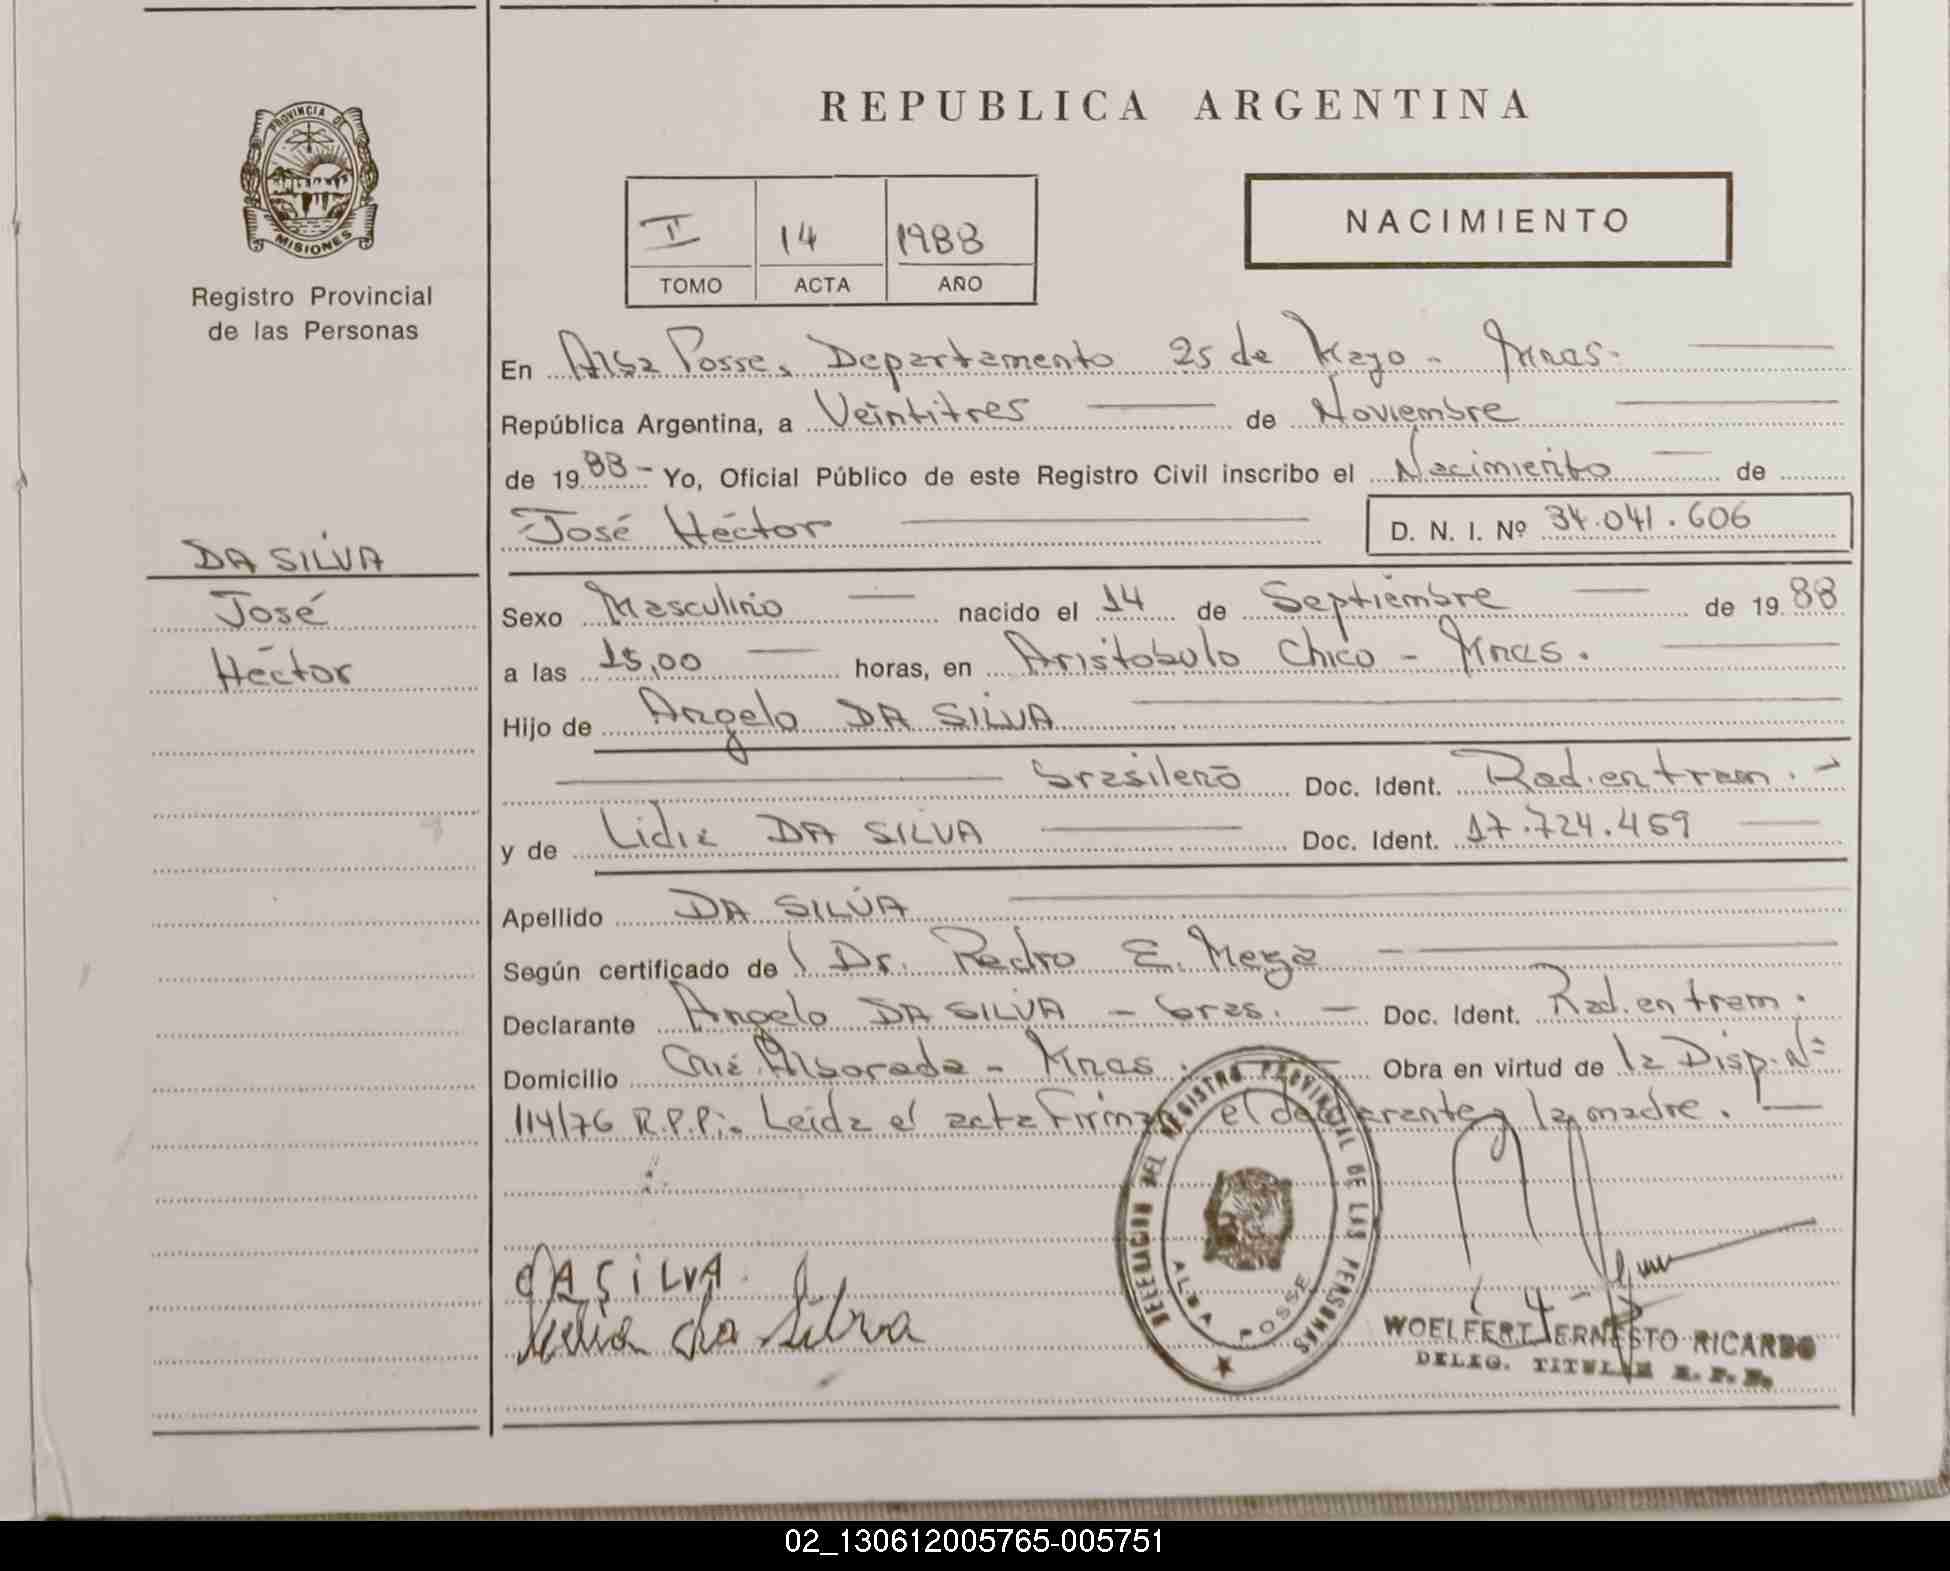 REPUBLICA ARGENTINA
PROVINCIA DE
MISIONES
Registro Provincial
de las Personas
II 14 1988
TOMO ACTA AÑO
NACIMIENTO
En Alba Posse, Departamento 25 de Mayo - Mnas.
República Argentina, a Veintitres de Noviembre
de 1988 - Yo, Oficial Público de este Registro Civil inscribo el Nacimiento de
José Héctor D. N. I. Nº 34.041.606
DA SILVA
José
Héctor
Sexo Masculino nacido el 14 de Septiembre de 1988
a las 15,00 horas, en Aristobulo Chico - Mnas.
Hijo de Angelo DA SILVA
brasileño Doc. Ident. Rad. en tram. -
y de Lidia DA SILVA Doc. Ident. 17.724.459
Apellido DA SILVA
Según certificado de Dr. Pedro E. Meza
Declarante Angelo DA SILVA - bras. - Doc. Ident. Rad. en tram.
Domicilio Alborada - Mnas. Obra en virtud de la Disp. Nº
114/76 R.P.P. Leída el acta firman el declarante y la madre.
DELEGACION DEL REGISTRO PROVINCIAL DE LAS PERSONAS
ALBA POSSE
dA SiLVA
Lidia da Silva
WOELFERT ERNESTO RICARDO
DELEG. TITULAR R. P. P.
02_130612005765-005751